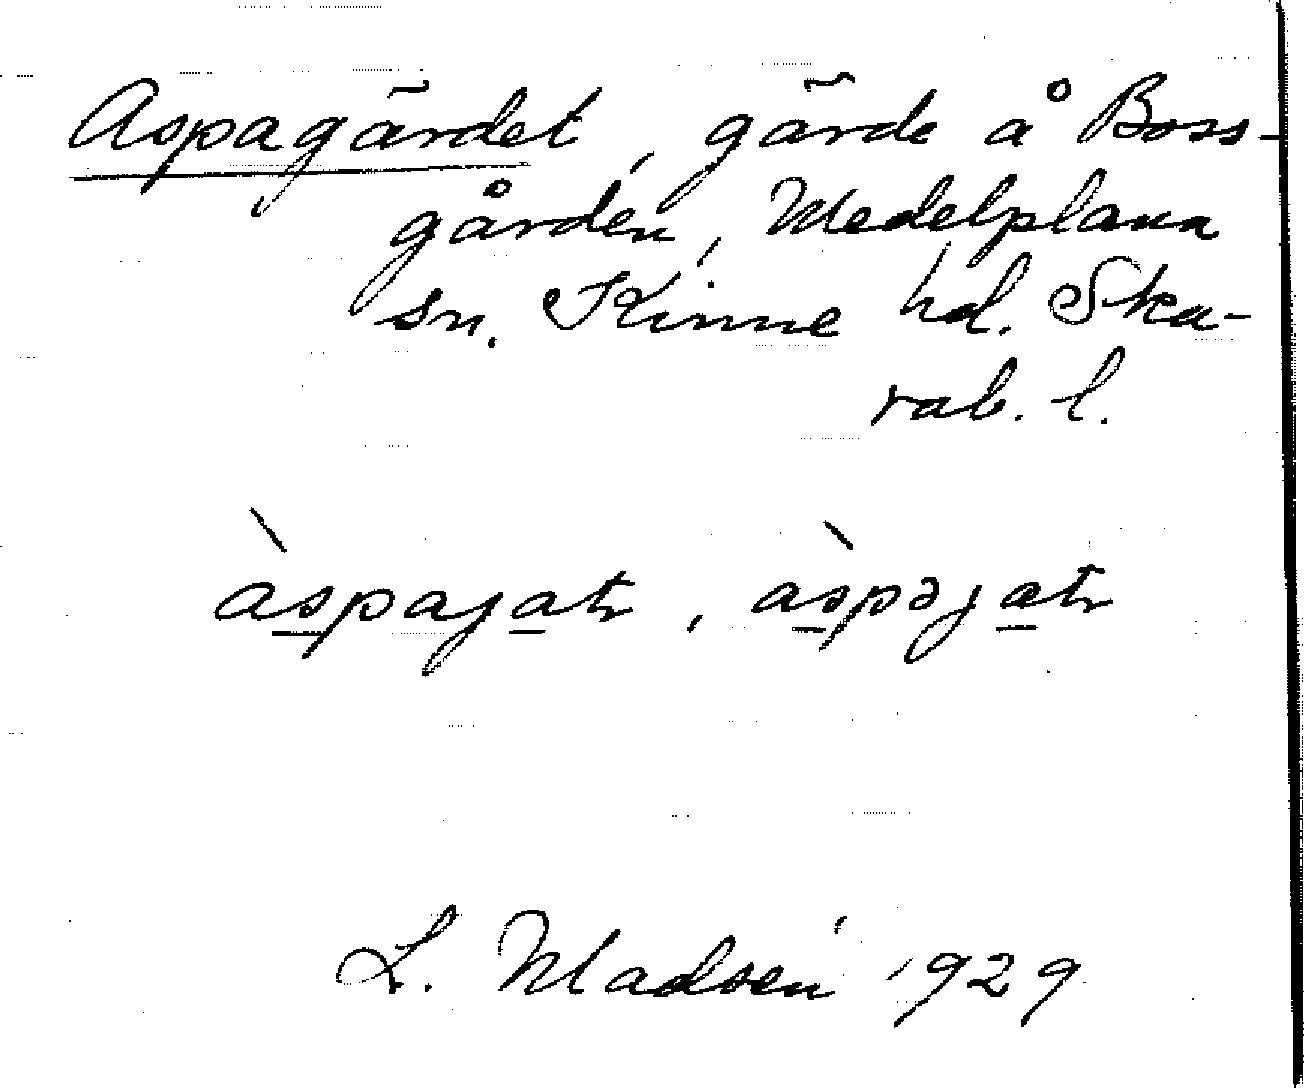 Aspagärdet, gärde å Boss-
gården, Medelplana
sn. Kinne hd. Ska-
rab. l.
àspajatɩ, àspəjatɩ
L. Madsén 1929